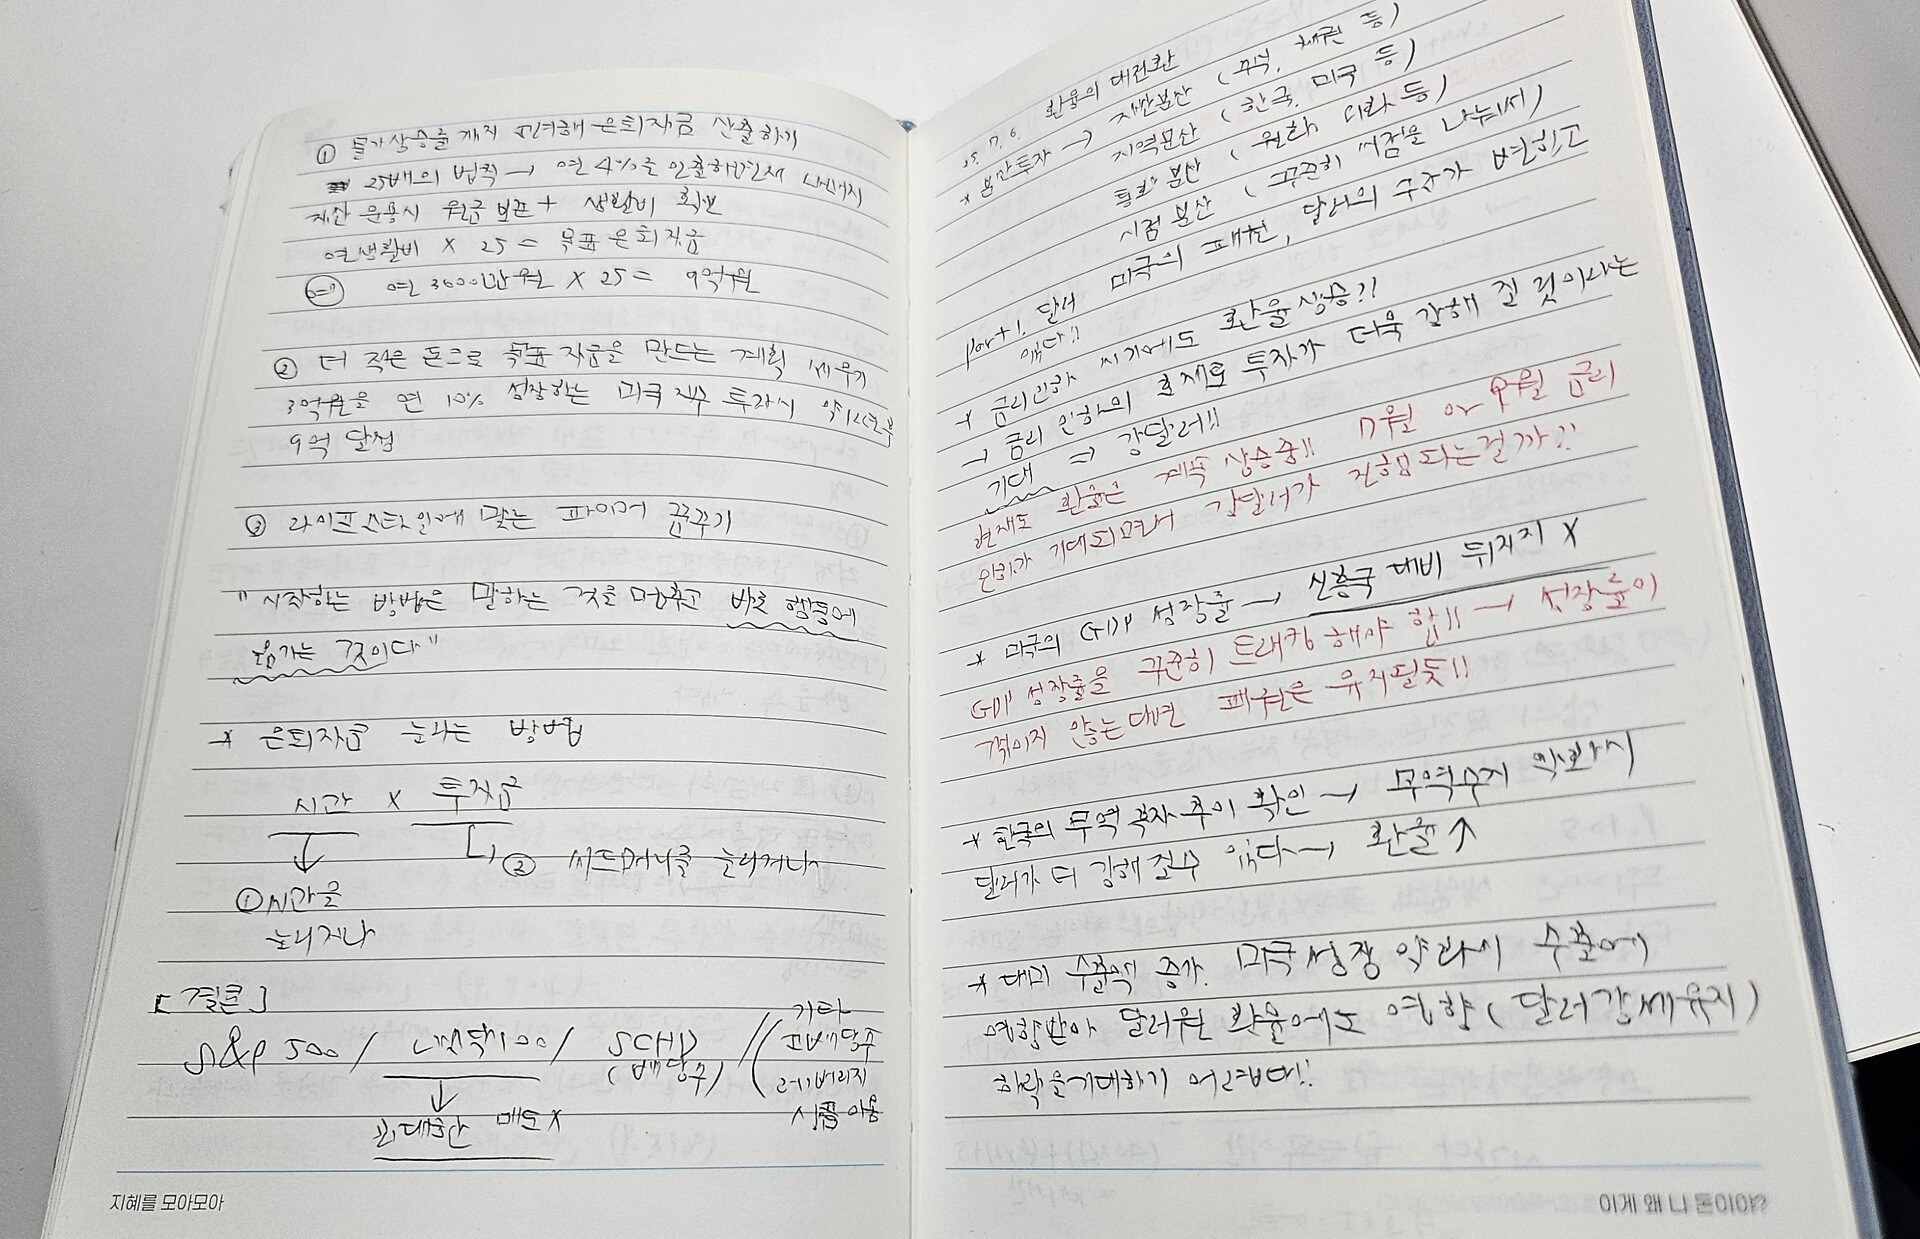 ① 물가상승률까지 고려해 은퇴자금 산출하기
25배의 법칙 → 연 4%를 인출하면서 나머지
자산 운용시 원금 보존 + 생활비 확보
연생활비 × 25 = 목표 은퇴자금
연 3600만원 × 25 = 9억원
② 더 적은 돈으로 목표 자금을 만드는 계획 세우기
3억원을 연 10% 성장하는 미국 지수 투자시 약 12년후
9억 달성
③ 라이프스타일에 맞는 파이어 꿈꾸기
"시작하는 방법은 말하는 것을 멈추고 바로 행동에
옮기는 것이다"
* 은퇴자금 늘리는 방법
시간 × 투자금
② 씨드머니를 늘리거나
① 시간을
늘리거나
[결론]
S&P 500 / 나스닥100 / SCHD (배당주) / (기타
고배당주
레버리지
상품 이용
최대한 매도 X
지혜를 모아모아
25. 7. 6. 환율의 대전환
* 분산투자 → 자산분산 (주식, 채권 등)
지역분산 (한국, 미국 등)
통화 분산 (원화, 외화 등)
시점 분산 (꾸준히 시점을 나눠서)
part 1. 달러 미국의 패권, 달러의 구조가 변하고
있다!!
* 금리인하 시기에도 환율상승?!
→ 금리 인하의 호재로 투자가 더욱 강해 질 것이라는
기대 ⇒ 강달러!!
현재도 환율은 계속 상승중!! 7월 or 9월 금리
인하가 기대되면서 강달러가 진행되는걸까?!
* 미국의 GDP 성장률 → 신흥국 대비 뒤지지 X
GDP 성장률을 꾸준히 트래킹 해야 함!! → 성장률이
꺾이지 않는다면 패권은 유지될듯!!
* 한국의 무역 흑자 추이 확인 → 무역수지 악화시
달러가 더 강해질수 있다 → 환율↑
* 대미 수출액 증가. 미국 성장 약화시 수출에
영향받아 달러원 환율에도 영향 (달러강세유지)
하락을 기대하기 어렵다!!
이게 왜 니 돈이야?